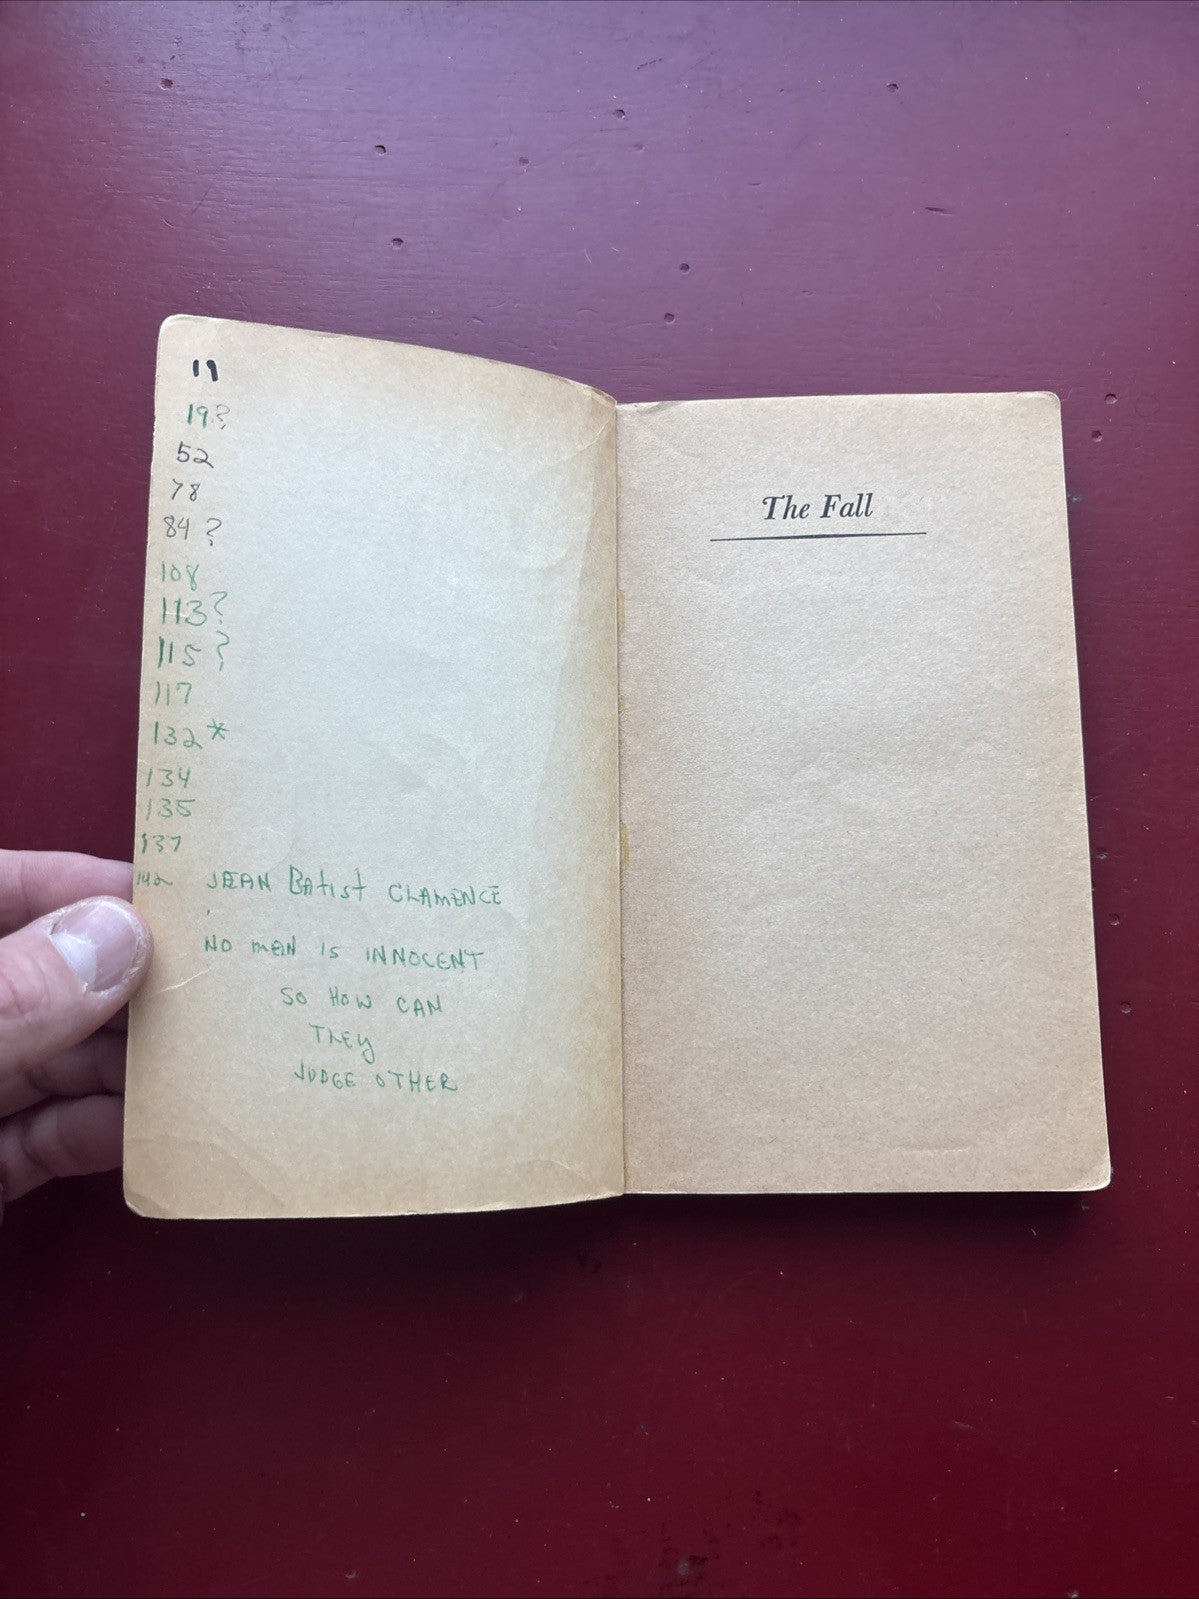 11
19?
52
78
84 ?
108
113?
115?
117
132*
134
135
137
142 JEAN BAtist CLAMENCE
NO MEN IS INNOCENT
SO HOW CAN
THEy
JUDGE OTHER
The Fall